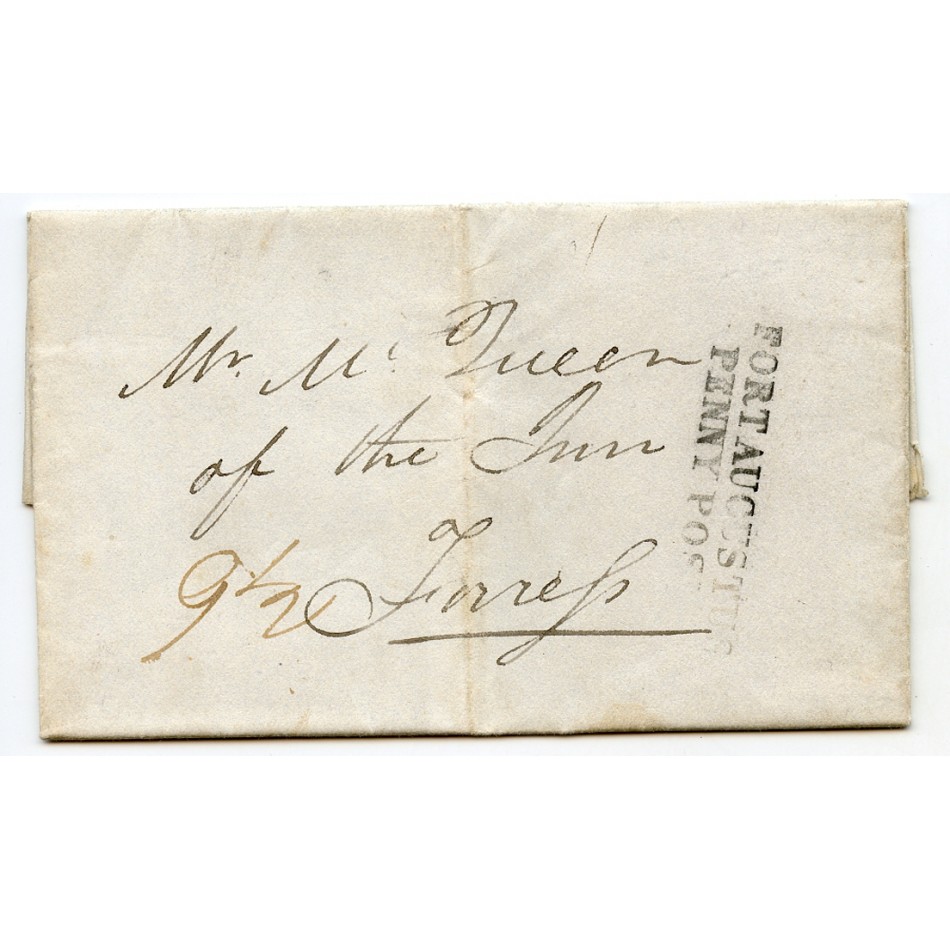 Mr. Mc. Queen
of the Inn
9 1/2 Forress
FORT AUGUSTUS
PENNY POS